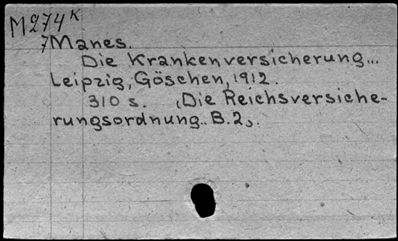 M274K
7Manes.
Die Krankenversicherung...
Leipzig, Göschen, 1912.
310 s. „Die Reichsversiche-
rungsordnung.. B.2„.